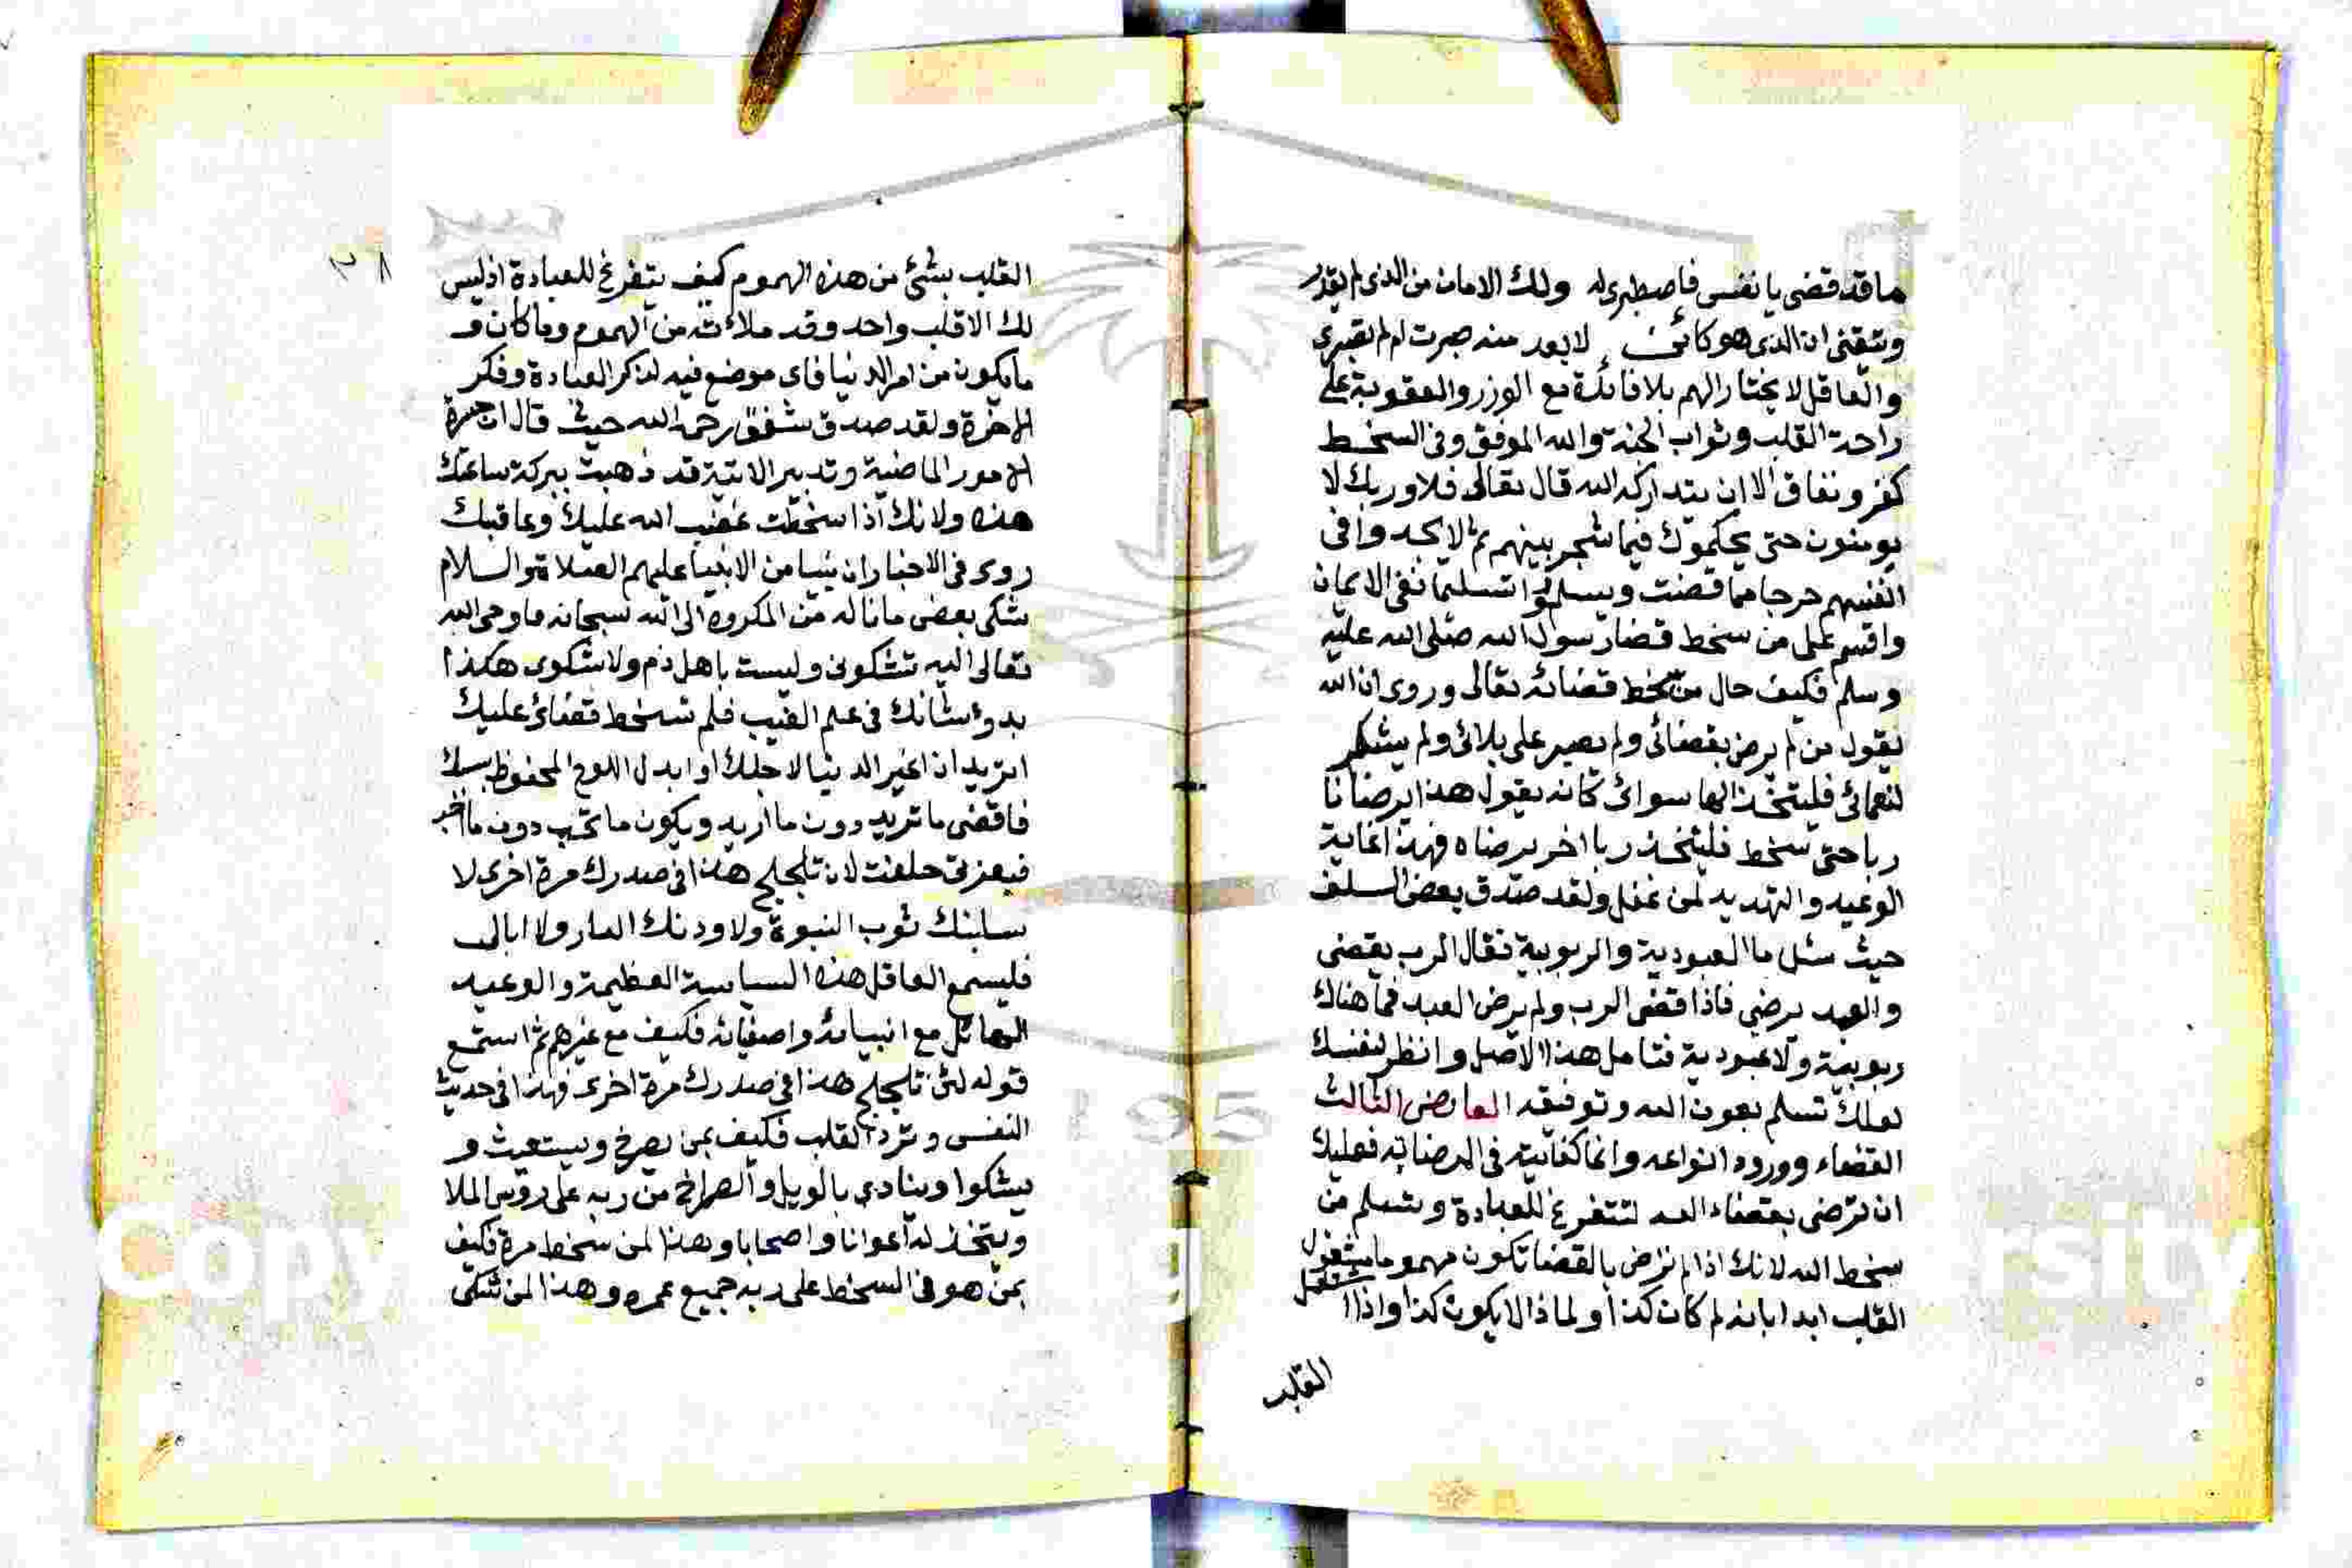 ما قد قضى يا نفس فاصطبرى له ولك الامان من الذى لم يقدر
وتيقنى ان الذى هو كائن لا بد منه صبرت ام لم تصبرى
والعاقل لا يختار الهم بلا فائدة مع الوزر والعقوبة على
راحة القلب وثواب الجنة والله الموفق وفى السخط
كفر ونفاق الا ان يتداركه الله قال تعالى فلا وربك لا
يومنون حتى يحكموك فيما شجر بينهم ثم لا يجدوا فى
انفسهم حرجا مما قضيت ويسلموا تسليما نفى الايمان
واقسم على من سخط قضا رسول الله صلى الله عليه
وسلم فكيف حال من سخط قضائه تعالى وروى ان الله
يقول من لم يرض بقضائى ولم يصبر على بلائى ولم يشكر
نعمائى فليتخذ الها سوائى كانه يقول هذا لا يرضانا
ربا حتى سخط فليتخذ ربا اخر يرضاه فهذا غاية
الوعيد والتهديد لمن غفل ولقد صدق بعض السلف
حيث سئل ما العبودية والربوبية فقال الرب يقضى
والعبد يرضى فاذا قضى الرب ولم يرض العبد فما هناك
ربوبية ولا عبودية فتامل هذا الاصل وانظر لنفسك
لعلك تسلم بعون الله وتوفيقه العارض الثالث
القضاء وورود انواعه وانما كفايته فى الرضا به فعليك
ان ترضى بقضاء الله لتتفرغ للعبادة وتسلم من
سخط الله لانك اذا لم ترض بالقضا تكون مهموما مشغول
القلب ابدا بانه لم كان كذا ولماذا لا يكون كذا واذا اشتغل
القلب
٢٨
القلب بشئ من هذه الهموم كيف يتفرغ للعبادة اذ ليس
لك الا قلب واحد وقد ملاته من الهموم وما كان و
ما يكون من امر الدنيا فاى موضع فيه لذكر العبادة وفكر
الاخرة ولقد صدق شقيق رحمه الله حيث قال ان حسرة
الامور الماضية وتدبير الاتية قد ذهبت ببركة ساعتك
هذه ولانك اذا سخطت غضب الله عليك وعاقبك
روى فى الاخبار ان نبيا من الانبيا عليهم الصلاة والسلام
شكى بعض ما ناله من المكروه الى الله سبحانه فاوحى الله
تعالى اليه تشكونى ولست باهل ذم ولا شكوى هكذا
بدو شانك فى علم الغيب فلم تسخط قضائى عليك
اتريد ان اغير الدنيا لاجلك او ابدل اللوح المحفوظ بسببك
فاقضى ما تريد دون ما اريد ويكون ما تحب دون ما احب
فبعزتى حلفت لان تلجلج هذا فى صدرك مرة اخرى لا
سلبنك ثوب النبوة ولاوردنك النار ولا ابالى
فليسمع العاقل هذه السياسة العظيمة والوعيد
الهائل مع انبيائه واصفيائه فكيف مع غيرهم ثم استمع
قوله لئن تلجلج هذا فى صدرك مرة اخرى فهذا فى حديث
النفس وتردد القلب فكيف بمن يصرخ ويستغيث و
يشكوا وينادى بالويل والصراخ من ربه على روس الملا
ويتخذ له اعوانا واصحابا وهذا لمن سخط مرة فكيف
بمن هو فى السخط على ربه جميع عمره وهذا لمن شكى